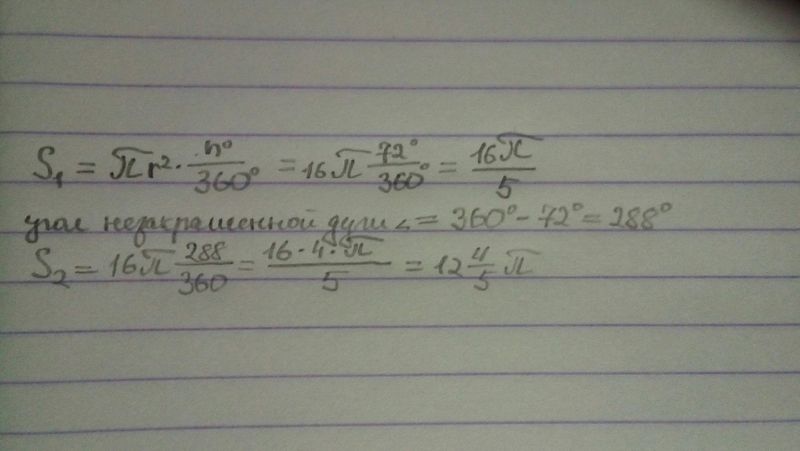 S₁ = πr² · n°/360° = 16π 72°/360° = 16π/5
угол незакрашенной дуги = 360° - 72° = 288°
S₂ = 16π 288/360 = 16·4·π/5 = 12 4/5 π